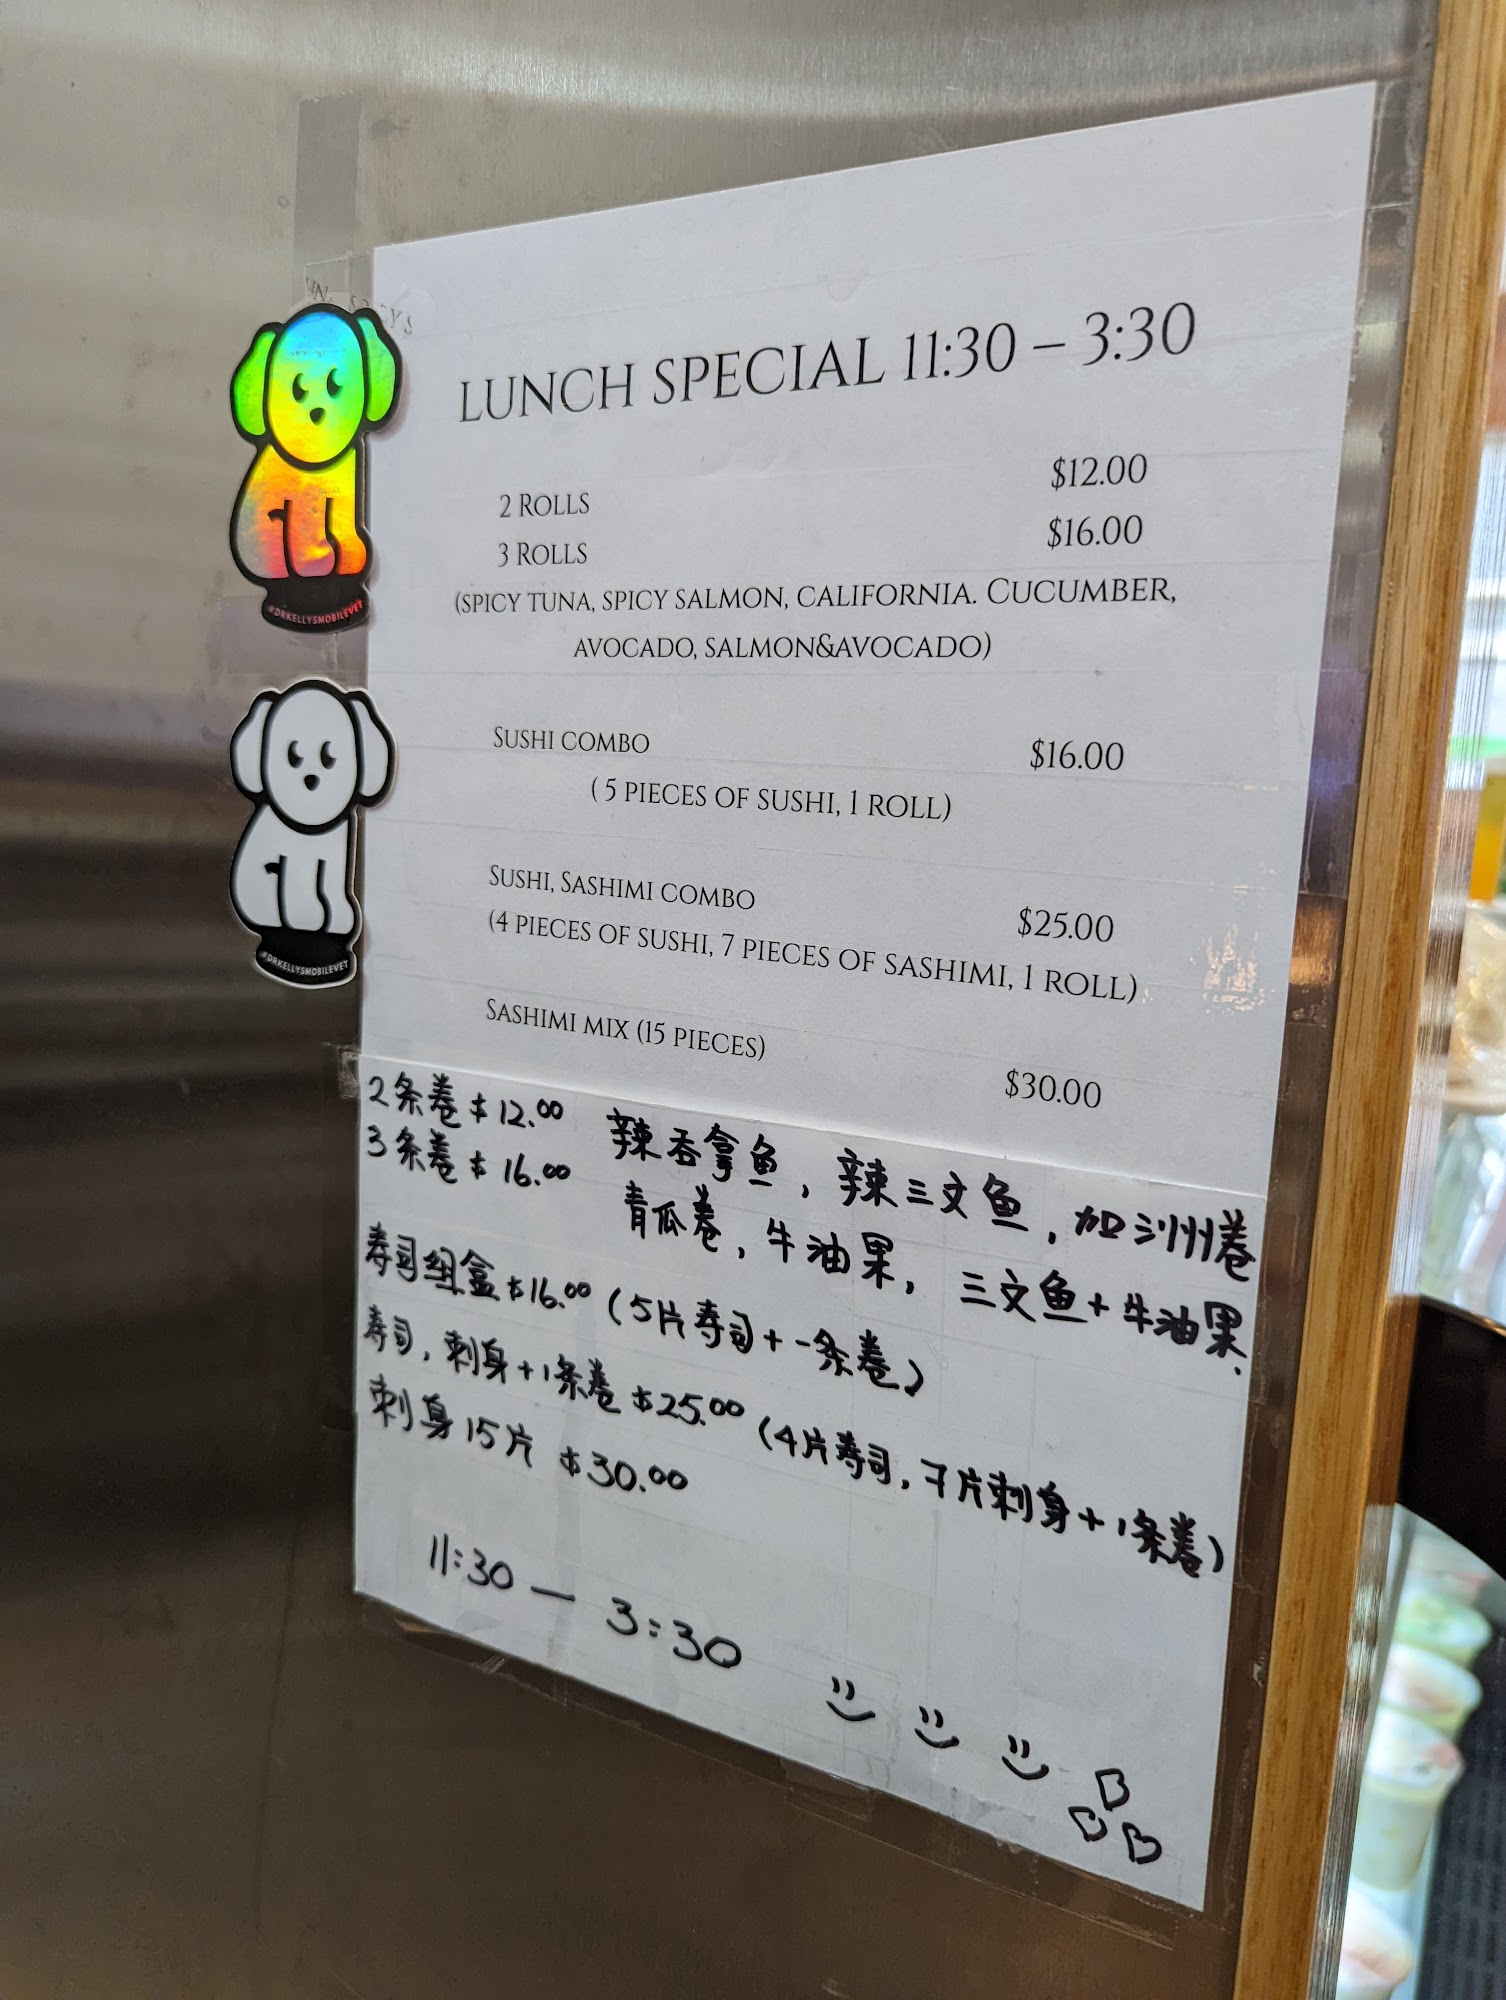 LUNCH SPECIAL 11:30 – 3:30
2 ROLLS $12.00
3 ROLLS $16.00
(SPICY TUNA, SPICY SALMON, CALIFORNIA. CUCUMBER,
AVOCADO, SALMON&AVOCADO)
SUSHI COMBO $16.00
( 5 PIECES OF SUSHI, 1 ROLL)
SUSHI, SASHIMI COMBO $25.00
(4 PIECES OF SUSHI, 7 PIECES OF SASHIMI, 1 ROLL)
SASHIMI MIX (15 PIECES) $30.00
2条卷 $12.00 辣吞拿鱼, 辣三文鱼, 加洲卷
3条卷 $16.00 青瓜卷, 牛油果, 三文鱼+牛油果.
寿司组盒 $16.00 (5片寿司+一条卷)
寿司, 刺身+1条卷 $25.00 (4片寿司, 7片刺身+1条卷)
刺身15片 $30.00
11:30 — 3:30
#DRKELLYSMOBILEVET
#DRKELLYSMOBILEVET